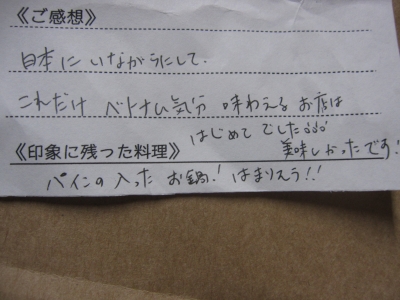 《ご感想》
日本に いながらにして、
これだけ ベトナム気分 味わえる お店は
はじめて でした!!!
美味しかったです!
《印象に残った料理》
パインの 入った お鍋! はまりそう!!